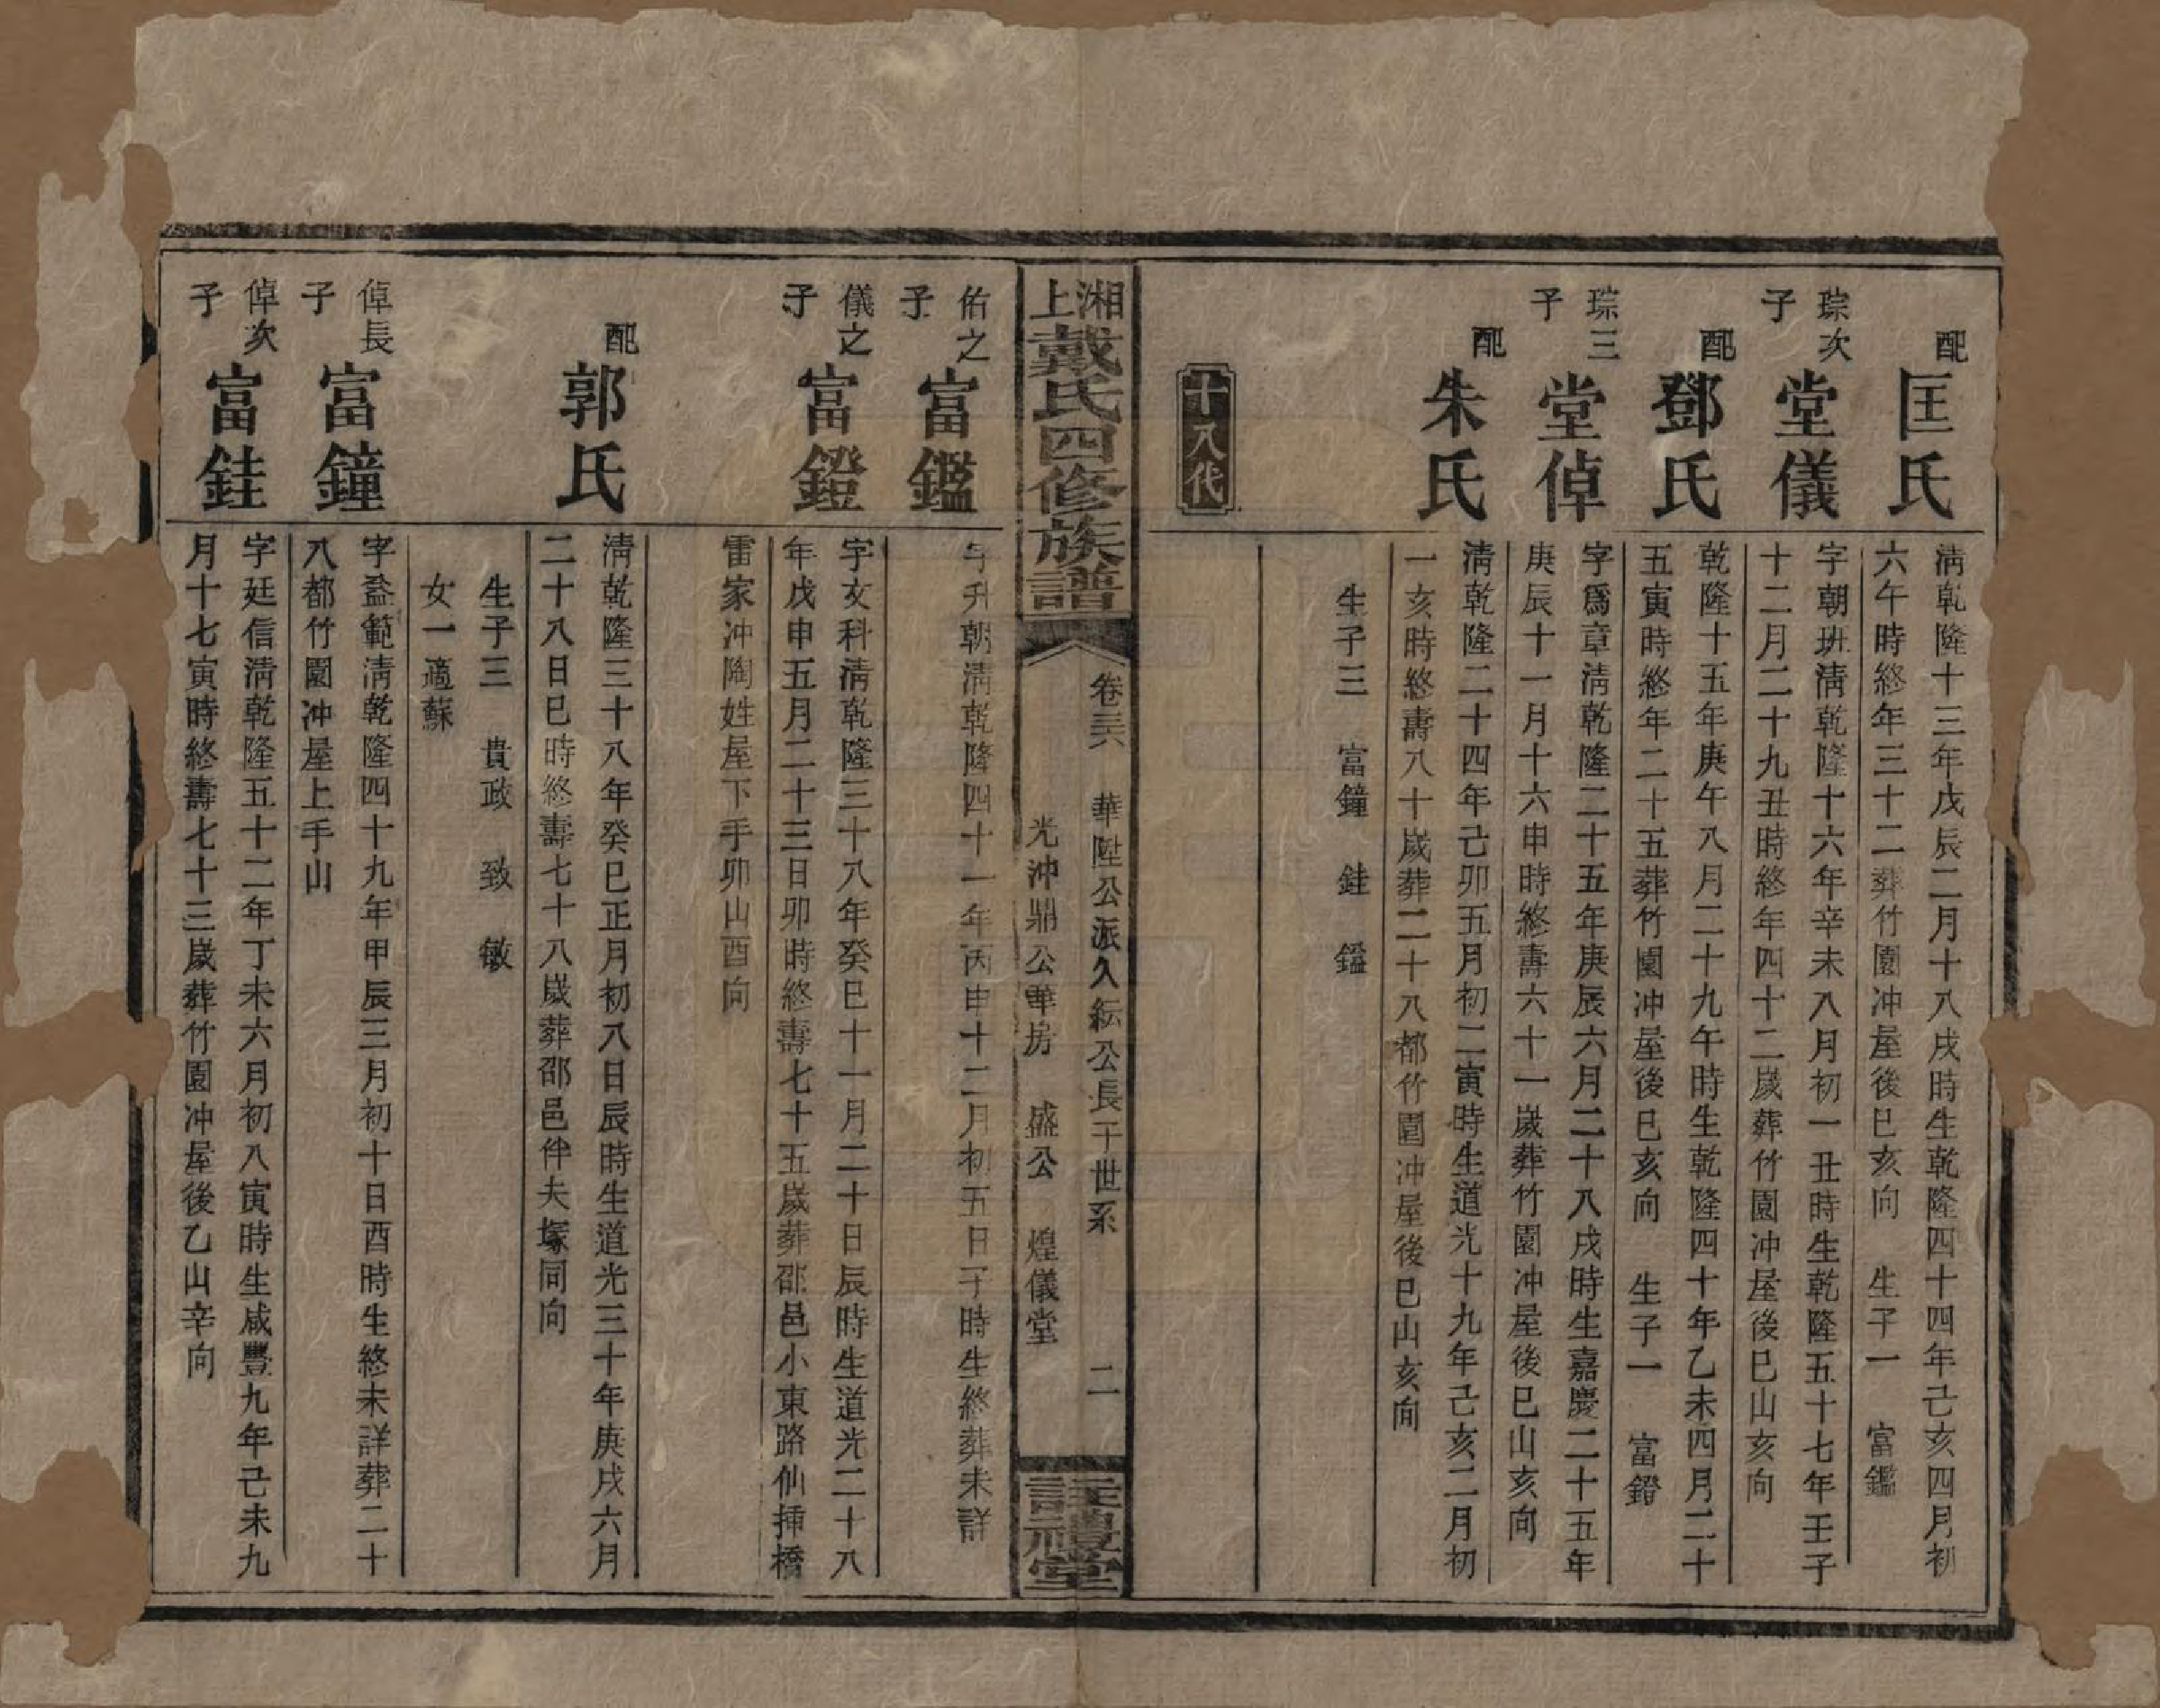 配
匡氏
淸乾隆十三年戊辰二月十八戌時生乾隆四十四年己亥四月初
六午時終年三十二葬竹園冲屋後巳亥向　生子一　富鑑
琮次子
堂儀
字朝班淸乾隆十六年辛未八月初一丑時生乾隆五十七年壬子
十二月二十九丑時終年四十二歲葬竹園冲屋後巳山亥向
配
鄧氏
乾隆十五年庚午八月二十九午時生乾隆四十年乙未四月二十
五寅時終年二十五葬竹園冲屋後巳亥向　生子一　富鐙
琮三子
堂倬
字爲章淸乾隆二十五年庚辰六月二十八戌時生嘉慶二十五年
庚辰十一月十六申時終壽六十一歲葬竹園冲屋後巳山亥向
配
朱氏
淸乾隆二十四年己卯五月初二寅時生道光十九年己亥二月初
一亥時終壽八十歲葬二十八都竹園冲屋後巳山亥向
生子三　富鐘　銈　鎰
十八代
湘上戴氏四修族譜
卷三六　華陞公派久紜公長子世系　二
光沖鼎公華房　盛公　煌儀堂
註禮堂
佑之子
富鑑
字升朝淸乾隆四十一年丙申十二月初五日子時生終葬未詳
儀之子
富鐙
字文科淸乾隆三十八年癸巳十一月二十日辰時生道光二十八
年戊申五月二十三日卯時終壽七十五歲葬邵邑小東路仙揷橋
雷家冲陶姓屋下手卯山酉向
配
郭氏
淸乾隆三十八年癸巳正月初八日辰時生道光三十年庚戌六月
二十八日巳時終壽七十八歲葬邵邑伴夫塚同向
生子三　貴政　致　敏
女一適蘇
倬長子
富鐘
字盆範淸乾隆四十九年甲辰三月初十日酉時生終未詳葬二十
八都竹園冲屋上手山
倬次子
富銈
字廷信淸乾隆五十二年丁未六月初八寅時生咸豐九年己未九
月十七寅時終壽七十三歲葬竹園冲屋後乙山辛向